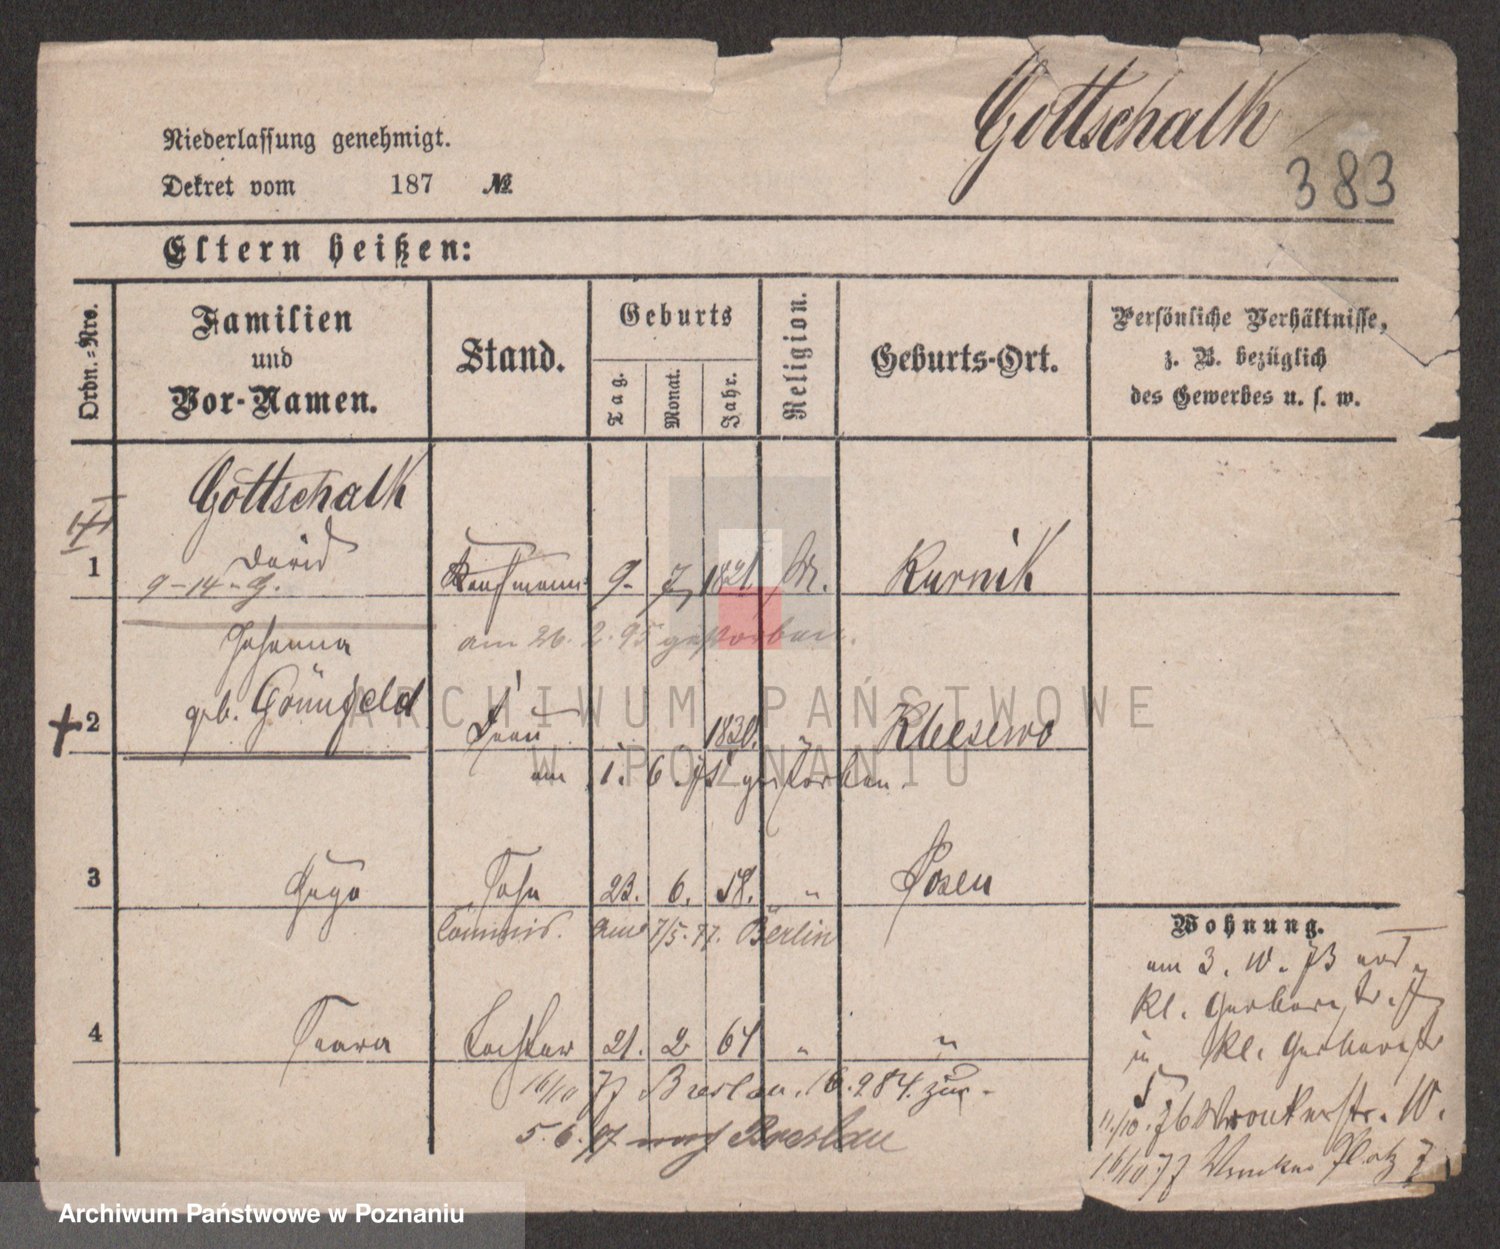 Gottschalk
383
Niederlassung genehmigt.
Dekret vom 187 №
Eltern heißen:
Ordn.=Nro.
Familien
und
Vor-Namen.
Stand.
Geburts
Tag.
Monat.
Jahr.
Religion.
Geburts-Ort.
Persönliche Verhältnisse,
z. B. bezüglich
des Gewerbes u. s. w.
Gottschalk
1 David Kaufmann 9. 7. 1821 M. Kurnik
9-14-9.
am 26. 2. 95 gestorben.
Johanna
2 geb. Grünfeld Frau 1830. Kleszewo
am 1. 6. 75 gestorben.
3 Hugo Sohn 23. 6. 58. " Posen
Commis. 7/5. 77. Berlin
4 Tochter 21. 2 64 " "
16/10 77 Breslau. 16.984. zur.
5. 6. 97 nach Breslau
Wohnung.
am 3. 10. 73
kl. Gerberstr. 7
in kl. Gerberstr
5
11/10. 76 Wronkerstr. 10.
16/10 77 Platz 7
ARCHIWUM PAŃSTWOWE
W POZNANIU
Archiwum Państwowe w Poznaniu